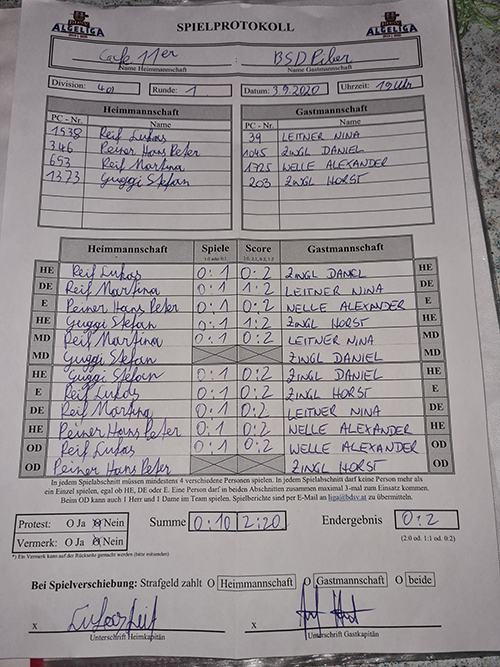 SPIELPROTOKOLL
ALGELIGA ALGELIGA
Cafe 11er : BSD Piber
Name Heimmannschaft Name Gastmannschaft
Division: 401 Runde: 1 Datum: 3.9.2020 Uhrzeit: 19 Uhr
Heimmannschaft Gastmannschaft
PC - Nr. Name PC - Nr. Name
1538 Reif Lukas 39 LEITNER NINA
346 Peiner Hans Peter 1045 ZINGL DANIEL
653 Reif Martina 1725 WELLE ALEXANDER
1373 Guggi Stefan 203 ZINGL HORST
Heimmannschaft Spiele Score Gastmannschaft
1:0 oder 0:1 2:0, 2:1, 0:2, 1:2
HE Reif Lukas 0:1 0:2 ZINGL DANIEL HE
DE Reif Martina 0:1 1:2 LEITNER NINA DE
E Peiner Hans Peter 0:1 0:2 WELLE ALEXANDER E
HE Guggi Stefan 0:1 1:2 ZINGL HORST HE
MD Reif Martina 0:1 0:2 LEITNER NINA MD
MD Guggi Stefan ZINGL DANIEL MD
HE Guggi Stefan 0:1 0:2 ZINGL DANIEL HE
E Reif Lukas 0:1 0:2 ZINGL HORST E
DE Reif Martina 0:1 0:2 LEITNER NINA DE
HE Peiner Hans Peter 0:1 0:2 WELLE ALEXANDER HE
OD Reif Lukas 0:1 0:2 WELLE ALEXANDER OD
OD Peiner Hans Peter ZINGL HORST OD
In jedem Spielabschnitt müssen mindestens 4 verschiedene Personen spielen. In jedem Spielabschnitt darf keine Person mehr als
ein Einzel spielen, egal ob HE, DE oder E. Eine Person darf in beiden Abschnitten zusammen maximal 3-mal zum Einsatz kommen.
Beim OD kann auch 1 Herr und 1 Dame im Team spielen. Spielberichte sind per E-Mail an liga@bdsv.at zu übermitteln.
Protest: O Ja O Nein Summe 0:10 2:20 Endergebnis 0:2
Vermerk: O Ja O Nein (2:0 od. 1:1 od. 0:2)
*) Ein Vermerk kann auf der Rückseite gemacht werden (bitte mitsenden)
Bei Spielverschiebung: Strafgeld zahlt O Heimmannschaft O Gastmannschaft O beide
x Lukas Reif x
Unterschrift Heimkapitän Unterschrift Gastkapitän